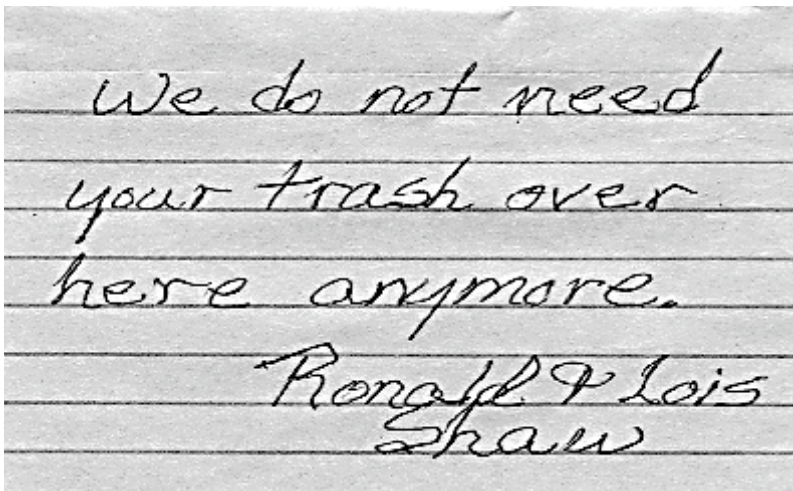 We do not need
your trash over
here anymore.
Ronald & Lois
Shaw